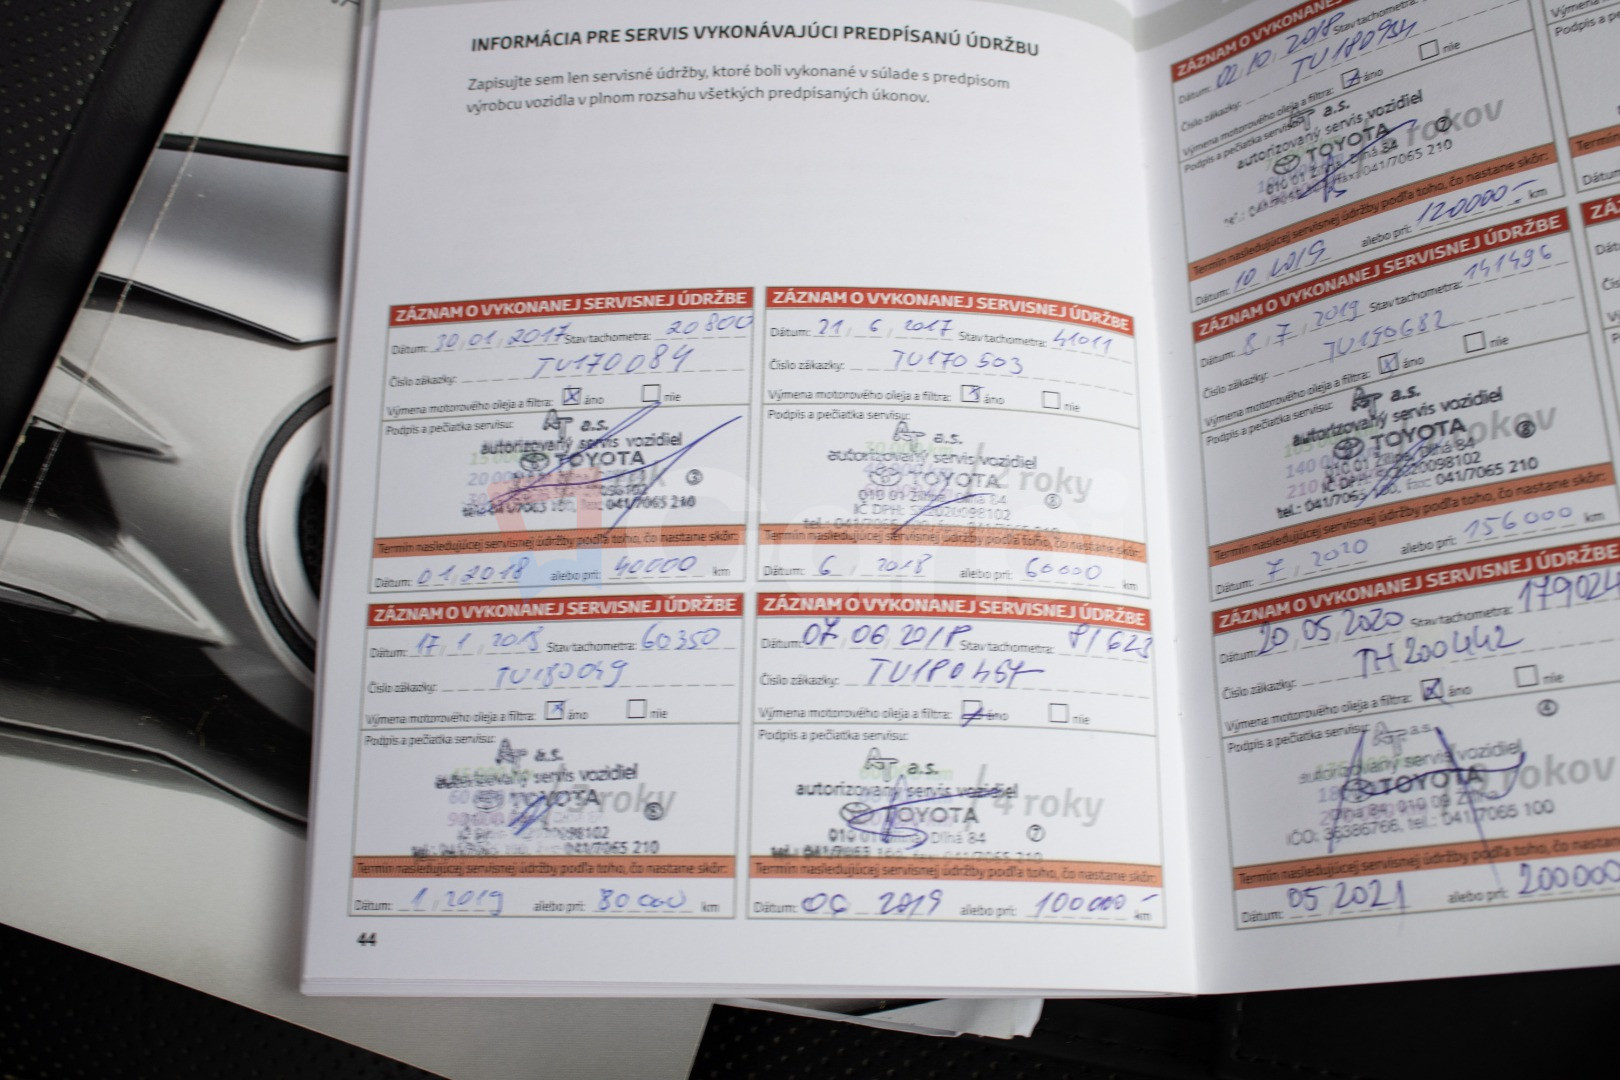 INFORMÁCIA PRE SERVIS VYKONÁVAJÚCI PREDPÍSANÚ ÚDRŽBU
Zapisujte sem len servisné údržby, ktoré boli vykonané v súlade s predpisom
výrobcu vozidla v plnom rozsahu všetkých predpísaných úkonov.
ZÁZNAM O VYKONANEJ SERVISNEJ ÚDRŽBE
Dátum: 30.01.2017 Stav tachometra: 20800
Číslo zákazky: TU170084
Výmena motorového oleja a filtra: áno nie
Podpis a pečiatka servisu:
a.s.
autorizovaný servis vozidiel
TOYOTA
Termín nasledujúcej servisnej údržby podľa toho, čo nastane skôr:
Dátum: 01.2018 alebo pri: 40000 km
ZÁZNAM O VYKONANEJ SERVISNEJ ÚDRŽBE
Dátum: 21. 6. 2017 Stav tachometra: 41011
Číslo zákazky: TU170503
Výmena motorového oleja a filtra: áno nie
Podpis a pečiatka servisu:
a.s.
autorizovaný servis vozidiel
TOYOTA
2 roky
010 01 Žilina, Dlhá 84
Termín nasledujúcej servisnej údržby podľa toho, čo nastane skôr:
Dátum: 6. 2018 alebo pri: 60000 km
ZÁZNAM O VYKONANEJ SERVISNEJ ÚDRŽBE
Dátum: 17.1.2018 Stav tachometra: 60350
Číslo zákazky: TU180049
Výmena motorového oleja a filtra: áno nie
Podpis a pečiatka servisu:
a.s.
autorizovaný servis vozidiel
TOYOTA
roky
Termín nasledujúcej servisnej údržby podľa toho, čo nastane skôr:
Dátum: 1.2019 alebo pri: 80000 km
ZÁZNAM O VYKONANEJ SERVISNEJ ÚDRŽBE
Dátum: 07.06.2018 Stav tachometra: 81623
Číslo zákazky: TU180457
Výmena motorového oleja a filtra: áno nie
Podpis a pečiatka servisu:
a.s.
autorizovaný servis vozidiel
TOYOTA
4 roky
010 01 Žilina, Dlhá 84
Termín nasledujúcej servisnej údržby podľa toho, čo nastane skôr:
Dátum: 06 2019 alebo pri: 100000 km
44
ZÁZNAM O VYKONANEJ
Dátum: 02.10.2018 Stav tachometra:
Číslo zákazky: TU180934
Výmena motorového oleja a filtra: áno nie
Podpis a pečiatka servisu:
a.s.
autorizovaný servis vozidiel
TOYOTA
rokov
010 01 Žilina, Dlhá 84
Termín nasledujúcej servisnej údržby podľa toho, čo nastane skôr:
Dátum: 10.2019 alebo pri: 120000 km
ZÁZNAM O VYKONANEJ SERVISNEJ ÚDRŽBE
Dátum: 8.7.2019 Stav tachometra: 141496
Číslo zákazky: TU190682
Výmena motorového oleja a filtra: áno nie
Podpis a pečiatka servisu:
a.s.
autorizovaný servis vozidiel
TOYOTA
rokov
010 01 Žilina, Dlhá 84
tel.: 041/7065 100, fax: 041/7065 210
Termín nasledujúcej servisnej údržby podľa toho, čo nastane skôr:
Dátum: 7.2020 alebo pri: 156000 km
ZÁZNAM O VYKONANEJ SERVISNEJ ÚDRŽBE
Dátum: 20.05.2020 Stav tachometra: 179024
Číslo zákazky: TH200442
Výmena motorového oleja a filtra: áno nie
Podpis a pečiatka servisu:
a.s.
autorizovaný servis vozidiel
TOYOTA
rokov
IČO: 36386766, tel.: 041/7065 100
Termín nasledujúcej servisnej údržby podľa toho, čo nastane
Dátum: 05.2021 alebo pri: 200000